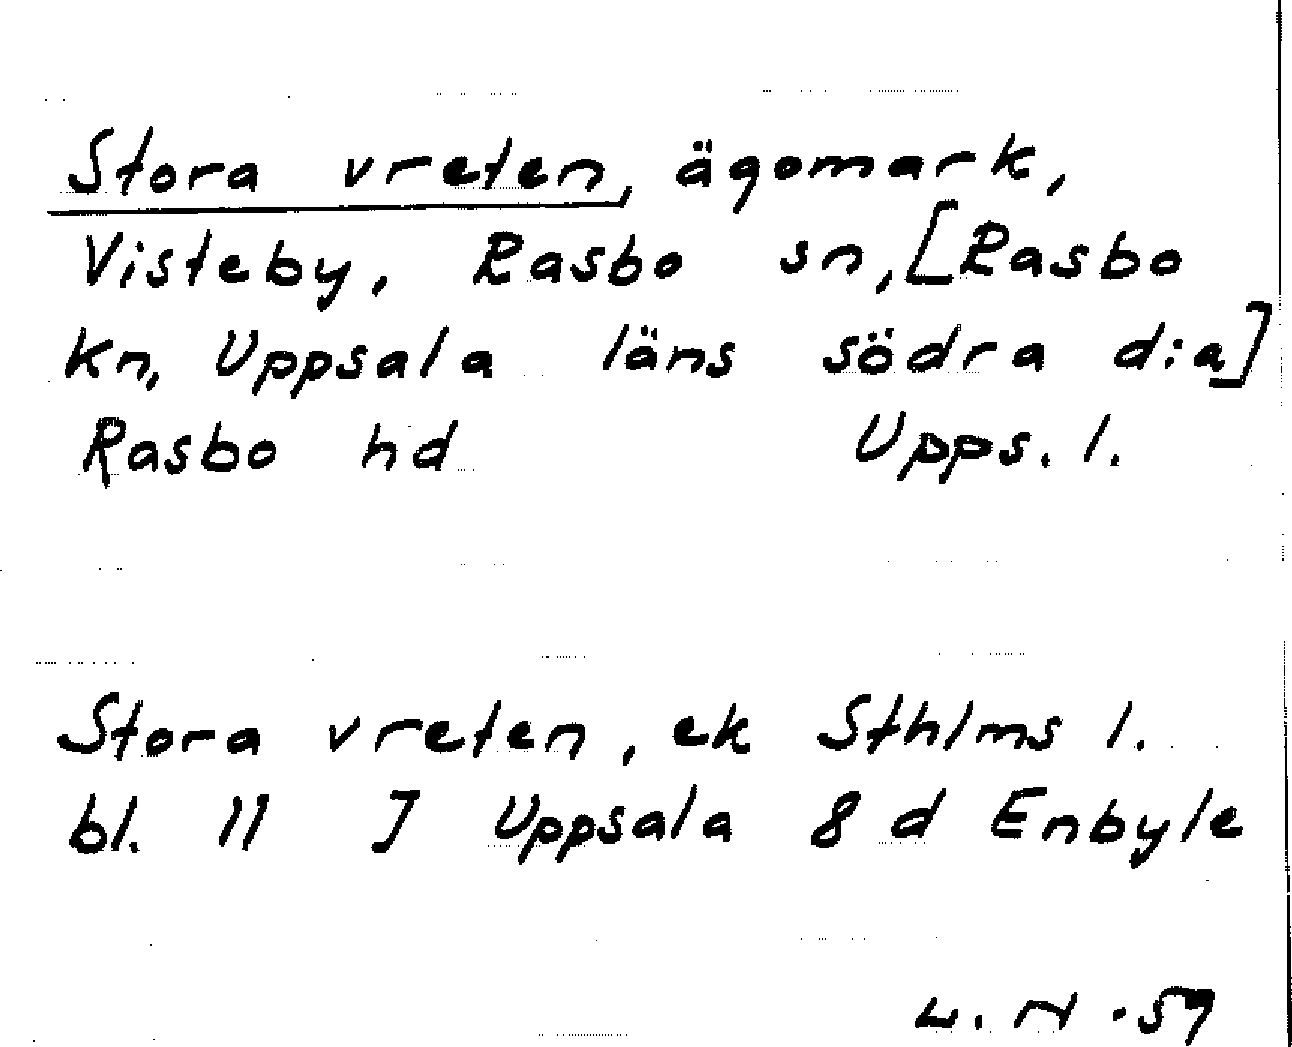 Stora vreten, ägomark,
Visteby, Rasbo sn, [Rasbo
kn, Uppsala läns södra d:a]
Rasbo hd Upps. l.
Stora vreten, ek Sthlms l.
bl. 11 J Uppsala 8 d Enbyle
L. N -59